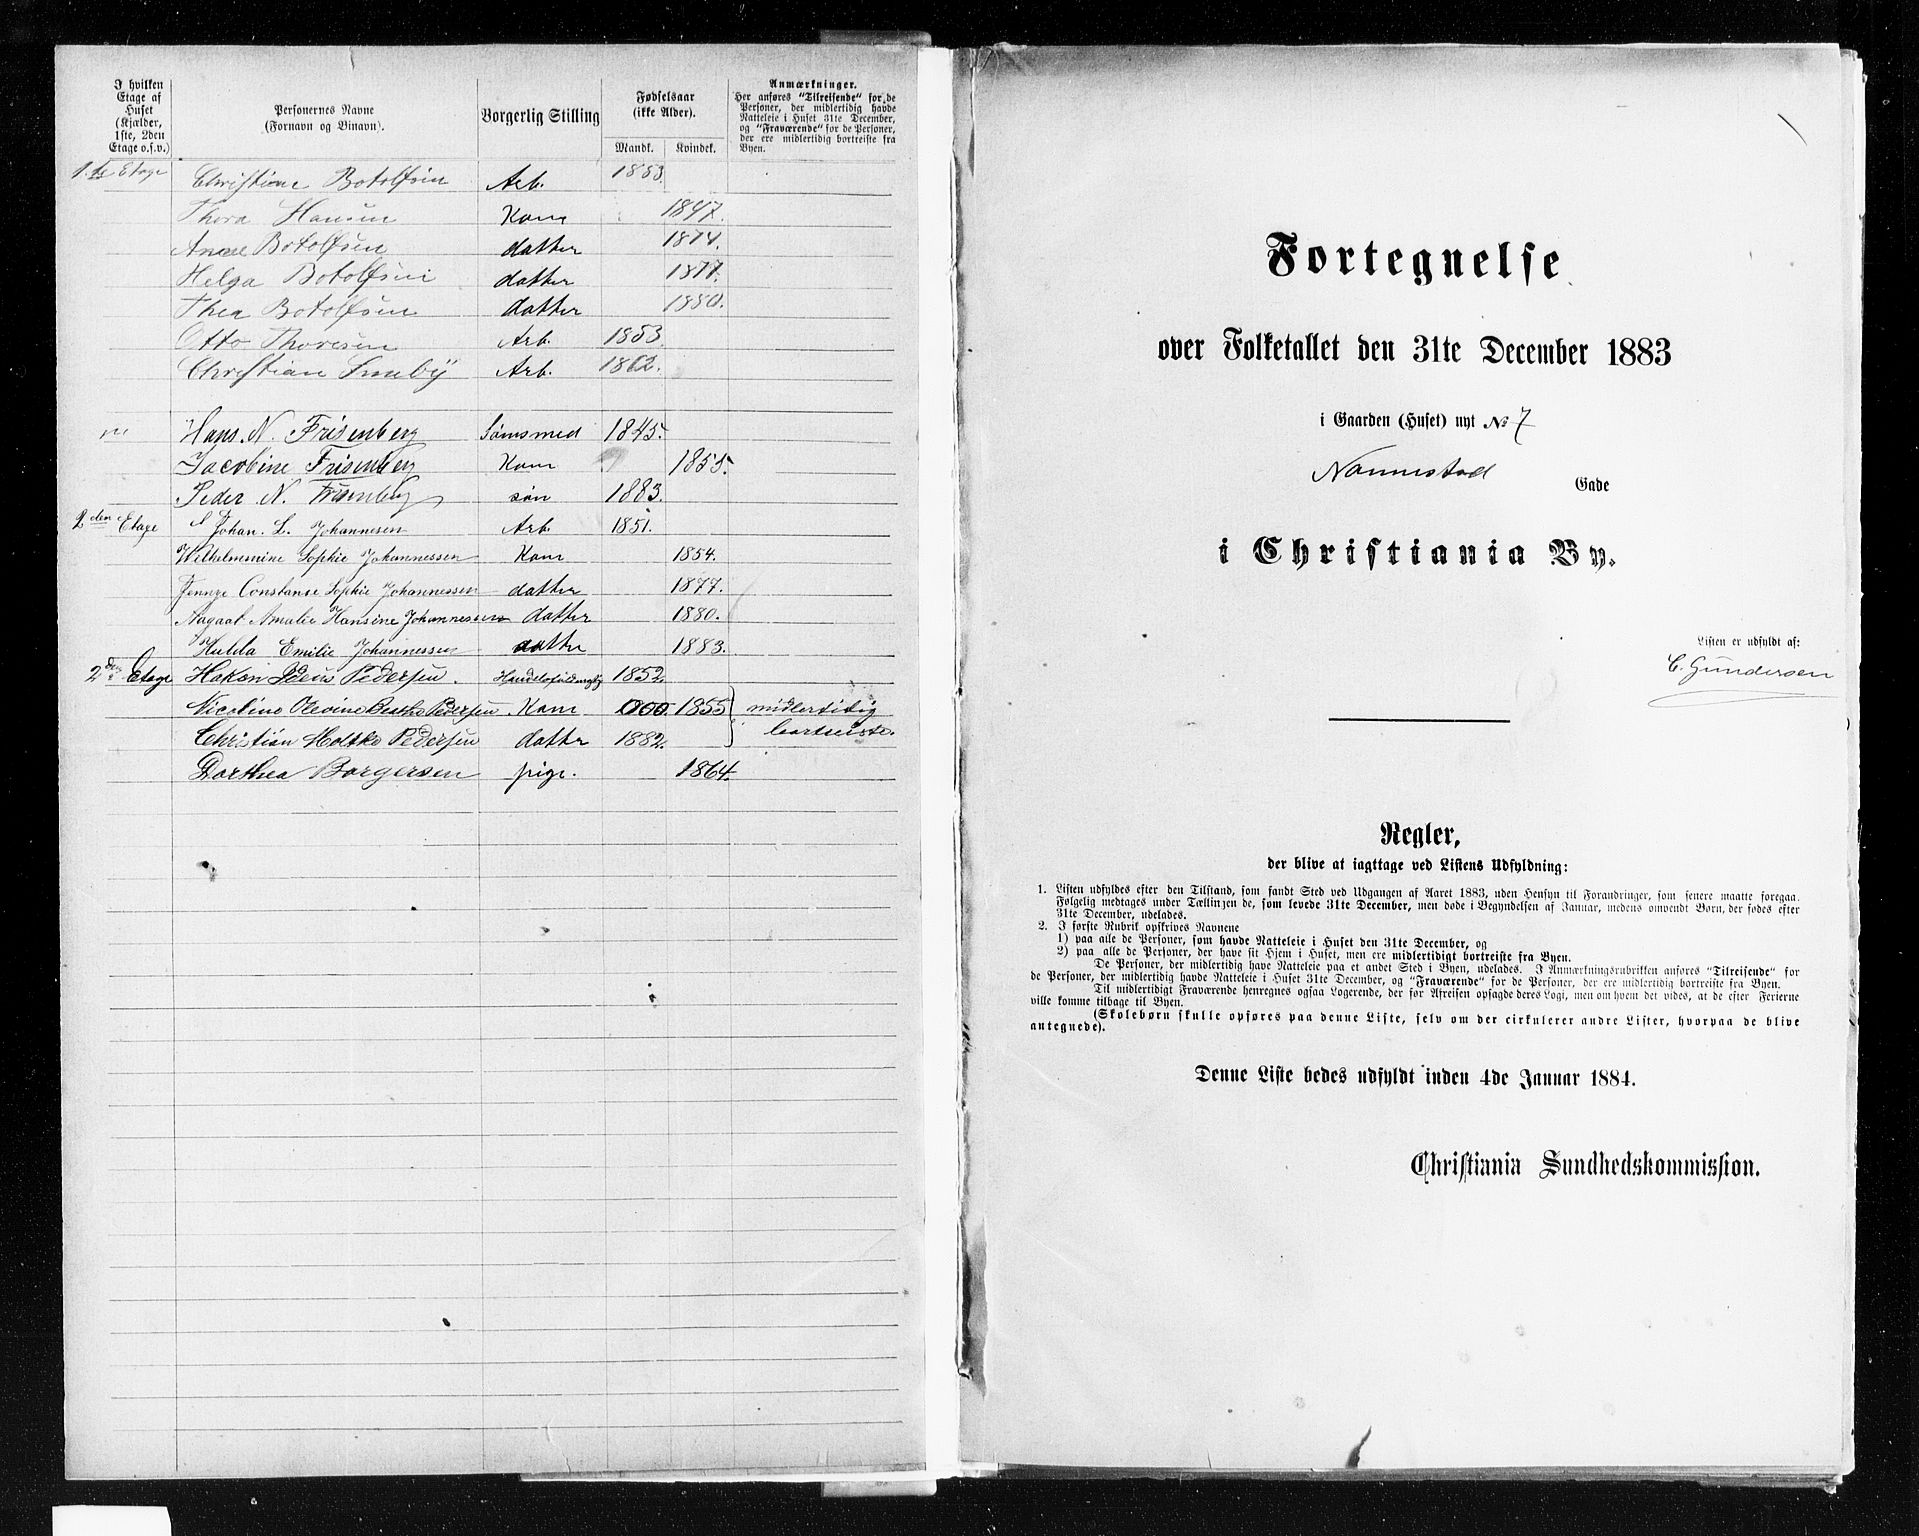 I hvilken
Etage af
Huset
(Kjælder,
1ste, 2den
Etage o.s.v.)
Personernes Navne
(Fornavn og Binavn).
Borgerlig Stilling
Fødselsaar
(ikke Alder).
Mandk. Kvindek.
Anmærkninger.
Her anføres "Tilreisende" for de
Personer, der midlertidig havde
Natteleie i Huset 31te December,
og "Fraværende" for de Personer,
der ere midlertidig bortreiste fra
Byen.
1ste Etage Christian Botolfsen Arb. 1853.
Thora Hansen Kone 1847.
Anne Botolfsen datter 1874.
Helga Botolfsen datter 1877.
Thea Botolfsen datter 1880.
Otto Thoresen Arb. 1853
Christian Smeby Arb. 1862.
Hans N. Frisenberg Sømsmed 1845.
Jacobine Frisenberg Kone 1855.
Peder N. Frisenberg søn 1883.
2den Etage Johan. L. Johannesen Arb. 1851.
Wilhelmmine Sophie Johannessen Kone 1854.
Jennye Constanse Sophie Johannessen datter 1877.
Aagaat Amalie Hansine Johannessen datter 1880.
Hulda Emilie Johannessen datter 1883.
2den Etage Hakon Pedersen. 1852.
Nicoline Olevine Pedersen Kone 1855 midlertidig
Christian Moltke Pedersen datter 1882. bortreiste.
Dorthea Borgersen pige. 1864.
Fortegnelse
over Folketallet den 31te December 1883
i Gaarden (Huset) nyt No 7
Nannestad Gade
i Christiania By.
Listen er udfyldt af:
C. Gundersen
Regler,
der blive at iagttage ved Listens Udfyldning:
1. Listen udfyldes efter den Tilstand, som fandt Sted ved Udgangen af Aaret 1883, uden Hensyn til Forandringer, som senere maatte foregaa.
Følgelig medtages under Tællingen de, som levede 31te December, men døde i Begyndelsen af Januar, medens omvendt Børn, der fødes efter
31te December, udelades.
2. I første Rubrik opskrives Navnene
1) paa alle de Personer, som havde Natteleie i Huset den 31te December, og
2) paa alle de Personer, der have sit Hjem i Huset, men ere midlertidigt bortreiste fra Byen.
De Personer, der midlertidig have Natteleie paa et andet Sted i Byen, udelades. I Anmærkningsrubrikken anføres "Tilreisende" for
de Personer, der midlertidig havde Natteleie i Huset 31te December, og "Fraværende" for de Personer, der ere midlertidig bortreiste fra Byen.
Til midlertidigt Fraværende henregnes ogsaa Logerende, der før Afreisen opsagde deres Logi, men om hvem det vides, at de efter Ferierne
ville komme tilbage til Byen.
(Skolebørn skulle opføres paa denne Liste, selv om der cirkulerer andre Lister, hvorpaa de blive
antegnede).
Denne Liste bedes udfyldt inden 4de Januar 1884.
Christiania Sundhedskommission.